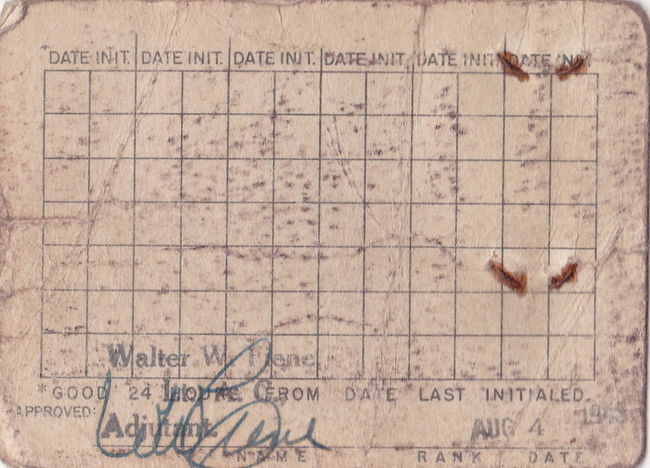 DATE INIT. DATE INIT. DATE INIT. DATE INIT. DATE INIT. DATE INIT.
Walter W. Fiene
*GOOD 24 HOURS FROM DATE LAST INITIALED.
APPROVED:
Adjutant.
AUG 4
NAME RANK DATE